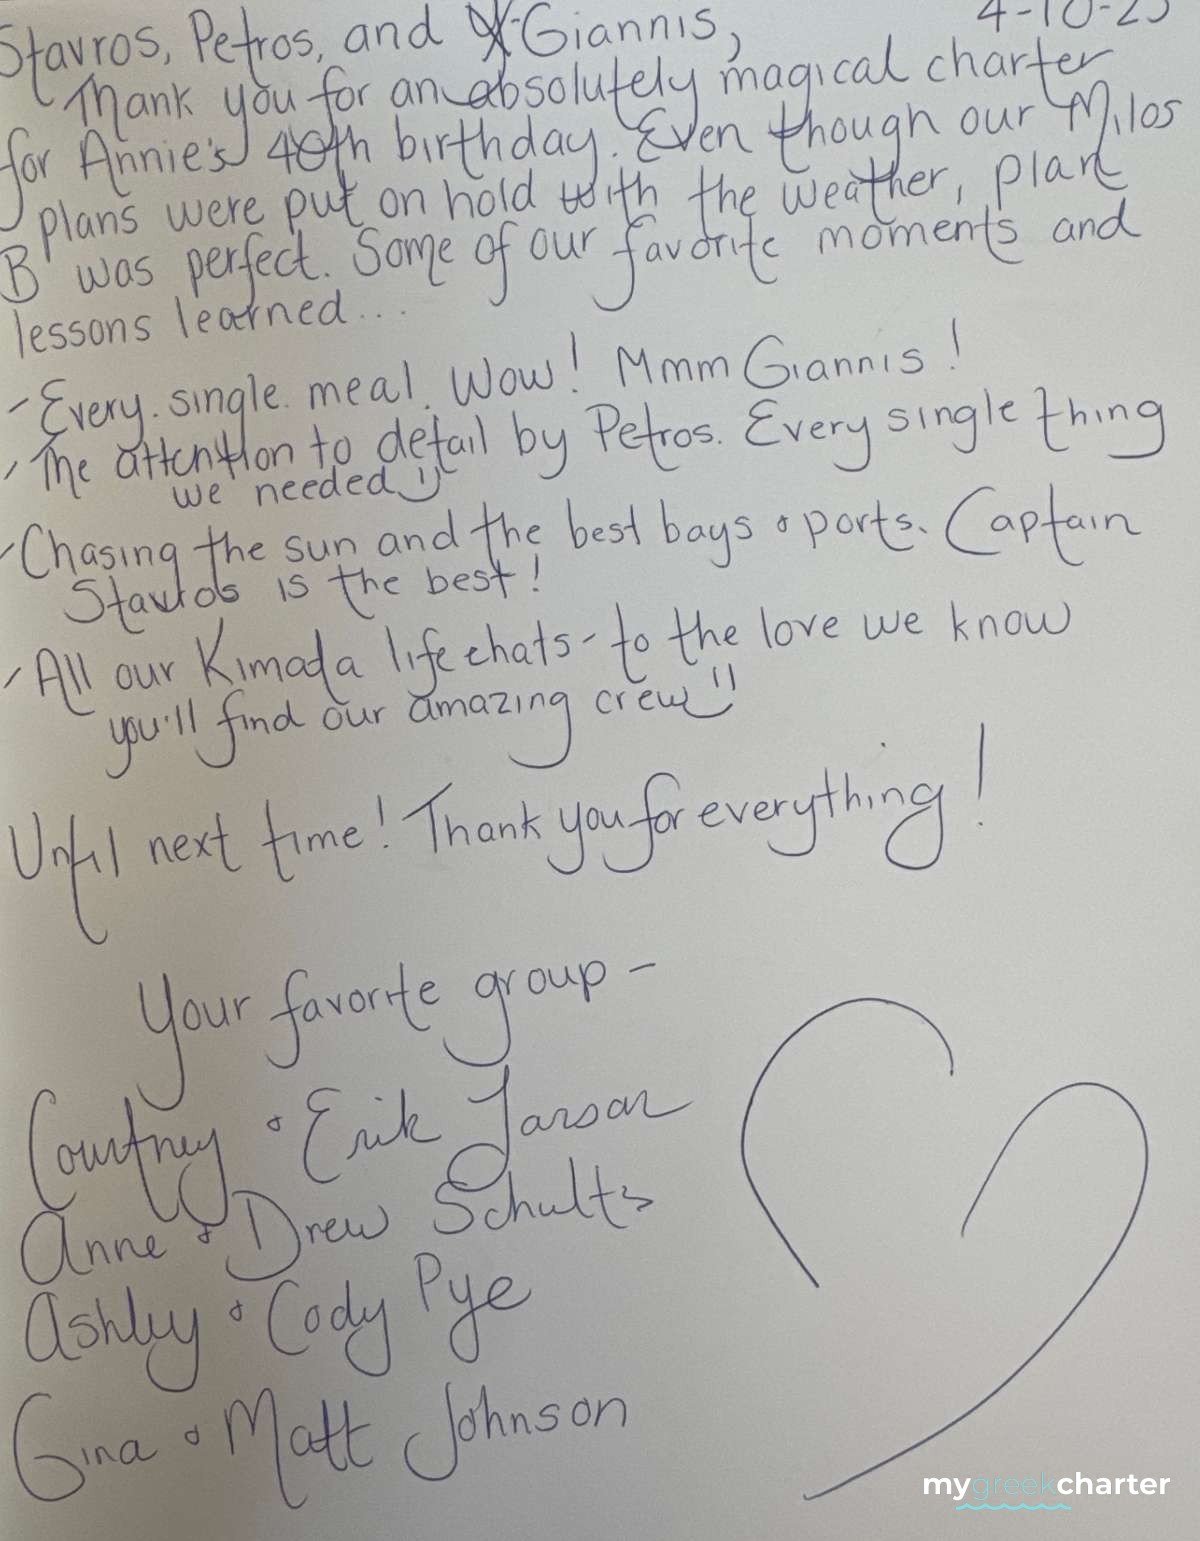 4-10-25
Stavros, Petros, and Giannis,
Thank you for an absolutely magical charter
for Annie's 40th birthday. Even though our Milos
plans were put on hold with the weather, plan
B was perfect. Some of our favorite moments and
lessons learned...
- Every. single. meal. Wow! Mmm Giannis!
- The attention to detail by Petros. Every single thing
we needed :)
- Chasing the sun and the best bays & ports. Captain
Stavros is the best!
- All our Kimada life chats - to the love we know
you'll find our amazing crew :)
Until next time! Thank you for everything!
Your favorite group -
Courtney & Erik Larson
Anne & Drew Schultz
Ashley & Cody Pye
Gina & Matt Johnson
mygreekcharter